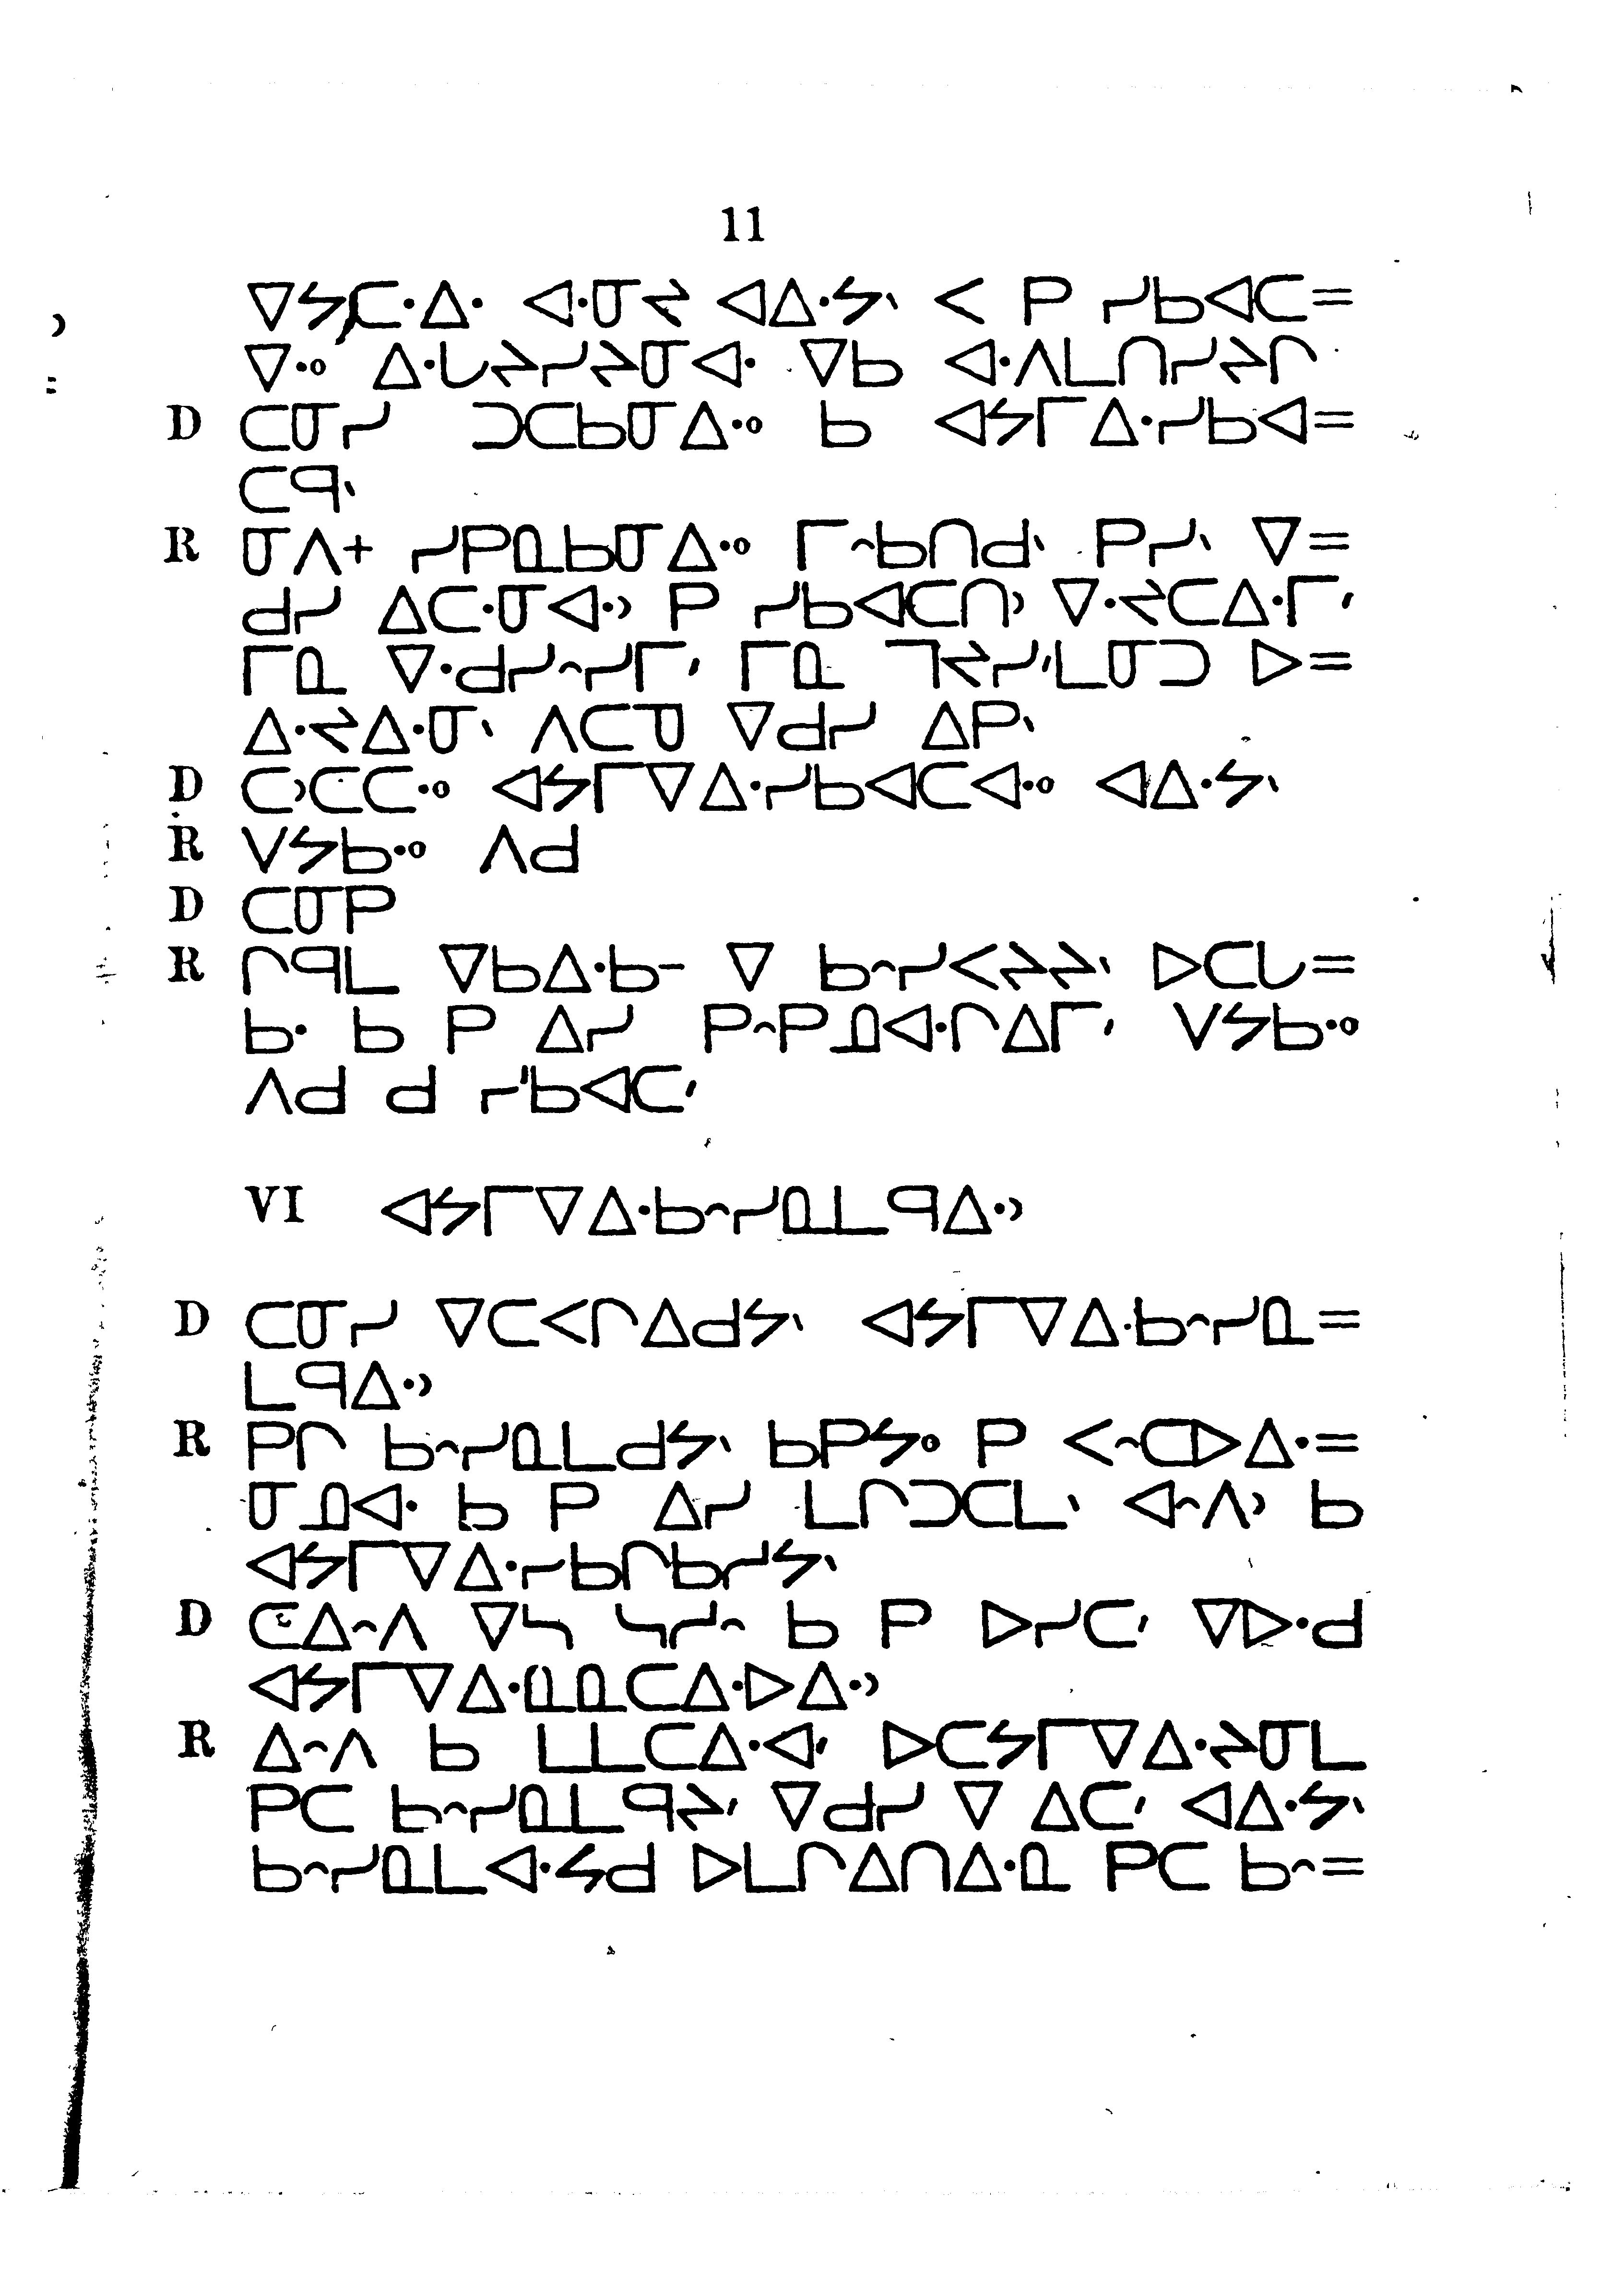 11
ᐁᔕᑕᐧᐃᐧ ᐊᐧᓂᔪ ᐊᐃᐧᔭᐠ ᐸ ᑭ ᓯᑲᐊᑕ=
ᐁᐧᐤ ᐃᐧᒐᔨᓯᔨᓂᐊᐧ ᐁᑲ ᐊᐧᐱᒪᑎᓯᔨᒋ
D ᑕᓂᓯ ᑐᑕᑲᓂᐃᐧᐤ ᑲ ᐊᔭᒥᐃᐧᓯᑲᐊ=
ᑕᑫᐠ
R ᓂᐱᐩ ᓯᑭᓇᑲᓂᐃᐧᐤ ᒥᐢᑲᑎᑯᐠ ᑭᓯᐠ ᐁ=
ᑯᓯ ᐃᑕᐧᓂᐊᐧᐣ ᑭ ᓯᑲᐊᑕᑎᐣ ᐁᐧᔪᑕᐃᐧᒥᐟ
ᒥᓇ ᐁᐧᑯᓯᓯᒥᐟ ᒥᓇ ᒣᔪᓯᐟᒪᓂᑐ ᐅ=
ᐃᐧᔪᐃᐧᓂᐠ ᐱᑕᓀ ᐁᑯᓯ ᐃᑭᐠ
D ᑕᐣᑕᑕᐧᐤ ᐊᔭᒥᐁᐃᐧᓯᑲᐊᑕᐊᐧᐤ ᐊᐃᐧᔭᐠ
R ᐯᔭᑲᐧᐤ ᐱᑯ
D ᑕᓂᑭ
R ᒋᑫᒪ ᐁᑲᐃᐧᑲᐨ ᐁ ᑲᐢᓯᐸᔨᔨᐠ ᐅᑕᒐ=
ᑲᐧ ᑲ ᑭ ᐃᓯ ᑭᐢᑭᓄᐊᐧᒋᐃᒥᐟ ᐯᔭᑲᐧᐤ
ᐱᑯ ᑯ ᓯᐟᑲᐊᑕᐟ
VI ᐊᔭᒥᐁᐃᐧᑲᐢᓯᓇᒪᑫᐃᐧᐣ
D ᑕᓂᓯ ᐁᑕᐸᒋᐃᑯᔭᐠ ᐊᔭᒥᐁᐃᐧᑲᐢᓯᓇ=
ᒪᑫᐃᐧᐣ
R ᑭᒋ ᑲᐢᓯᓇᒪᑯᔭᐠ ᑲᑭᔭᐤ ᑭ ᐸᐢᑕᐅᐃᐧ=
ᓂᓄᐊᐧ ᑲ ᑭ ᐃᓯ ᒪᒋᑐᑕᒪᐠ ᐊᐢᐱᐣ ᑲ
ᐊᔭᒥᐁᐃᐧᓯᑲᒋᑲᓯᔭᐠ
D ᑕᐃᐢᐱ ᐁᓴ ᓴᓯᐢ ᑲ ᑭ ᐅᓯᑕᐟ ᐁᐅᐧᑯ
ᐊᔭᒥᐁᐃᐧᓇᓇᑕᐃᐧᐅᐃᐧᐣ
R ᐃᐢᐱ ᑲ ᒪᒪᑕᐃᐧᐊᐧᐟ ᐅᑕᔭᒥᐁᐃᐧᔨᓂᒪ
ᑭᑕ ᑲᐢᓯᓇᒪᑫᔨᐟ ᐁᑯᓯ ᐁ ᐃᑕᐟ ᐊᐃᐧᔭᐠ
ᑲᐢᓯᓇᒪᐊᐧᔦᑯ ᐅᒪᒋᐃᑎᐃᐧᓇ ᑭᑕ ᑲᐢ=